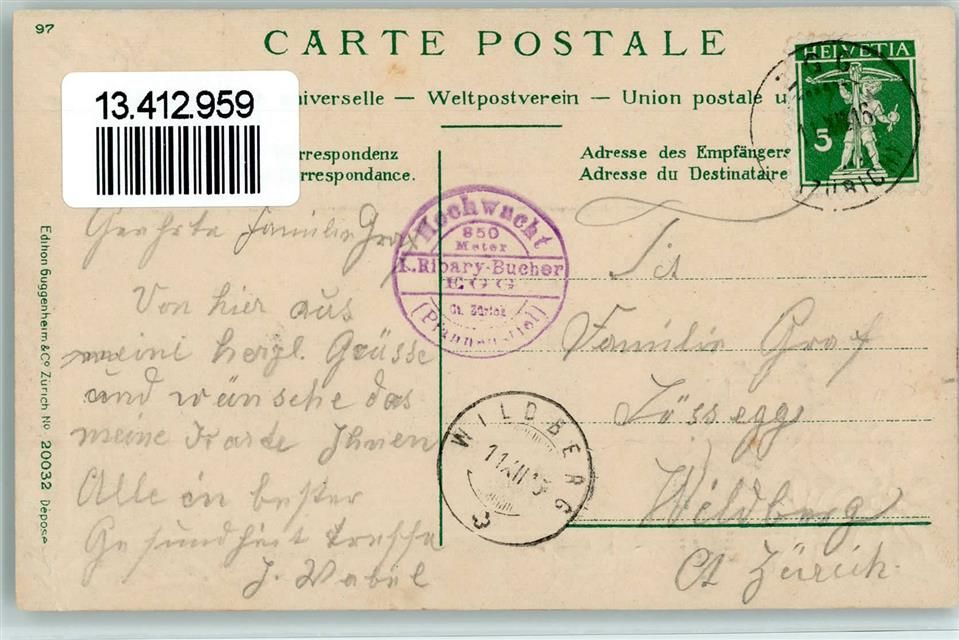 97
CARTE POSTALE
13.412.959
niverselle — Weltpostverein — Union postale u
rrespondenz
rrespondance.
Adresse des Empfängers
Adresse du Destinataire
HELVETIA
5
EGG
ZÜRICH
Hochwacht
850
Meter
Ribary-Bucher
EGG
Ct. Zürich
(Pfannenstiel)
Geehrte Familie Graf
Von hier aus
meine herzl. Grüsse
und wünsche das
meine Karte Ihnen
Alle in bester
Gesundheit treffe
J. Wabel
Familie Graf
Tössegg
Wildberg
Ct Zürich.
WILDBERG
11.XII.15
Edition Guggenheim & Co Zürich No 20032 Déposé